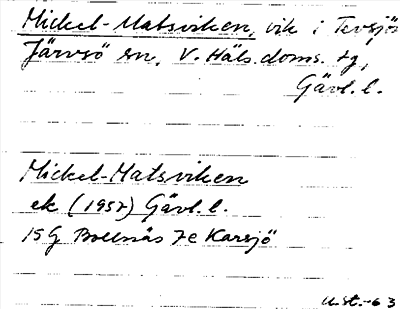 Mickel-Matsviken, vik i Tevsjön
Järvsö sn, V. Häls. doms. tg,
Gävl. l.
Mickel-Matsviken
ek (1957) Gävl. l.
15G Bollnäs 7e Karsjö
U.st.-63